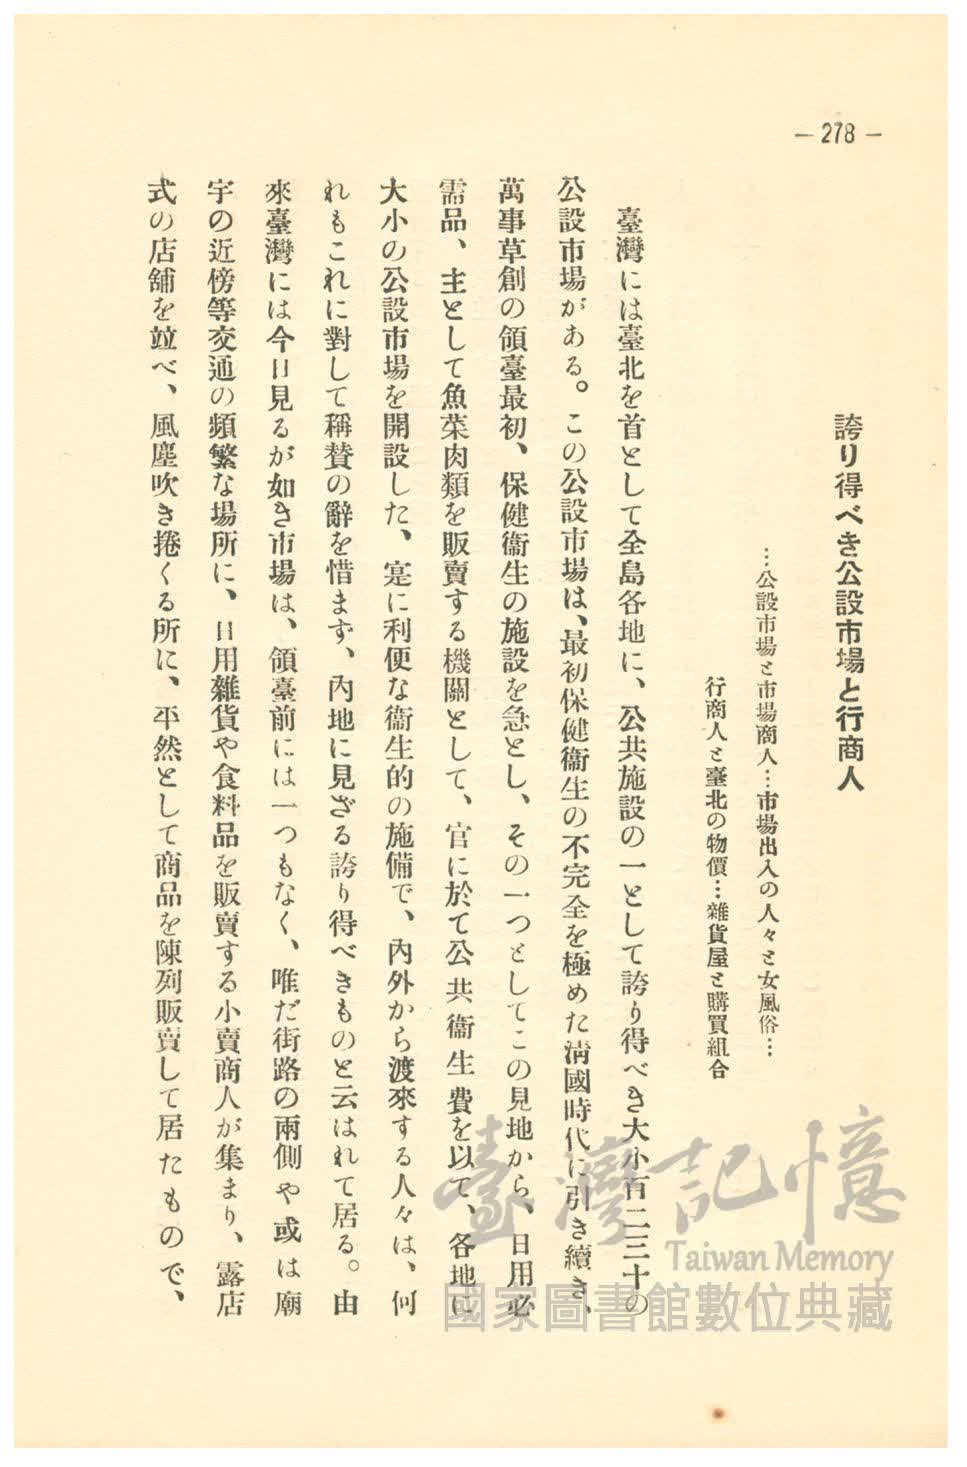 — 278 —
誇り得べき公設市場と行商人
…公設市場と市場商人…市場出入の人々と女風俗…
行商人と臺北の物價…雜貨屋と購買組合
臺灣には臺北を首として全島各地に、公共施設の一として誇り得べき大小百二三十の
公設市場がある。この公設市場は、最初保健衞生の不完全を極めた淸國時代に引き續き、
萬事草創の領臺最初、保健衞生の施設を急とし、その一つとしてこの見地から、日用必
需品、主として魚菜肉類を販賣する機關として、官に於て公共衞生費を以て、各地に
大小の公設市場を開設した、寔に利便な衞生的の施備で、內外から渡來する人々は、何
れもこれに對して稱賛の辭を惜まず、內地に見ざる誇り得べきものと云はれて居る。由
來臺灣には今日見るが如き市場は、領臺前には一つもなく、唯だ街路の兩側や或は廟
宇の近傍等交通の頻繁な場所に、日用雜貨や食料品を販賣する小賣商人が集まり、露店
式の店舖を竝べ、風塵吹き捲くる所に、平然として商品を陳列販賣して居たもので、
臺灣記憶
Taiwan Memory
國家圖書館數位典藏